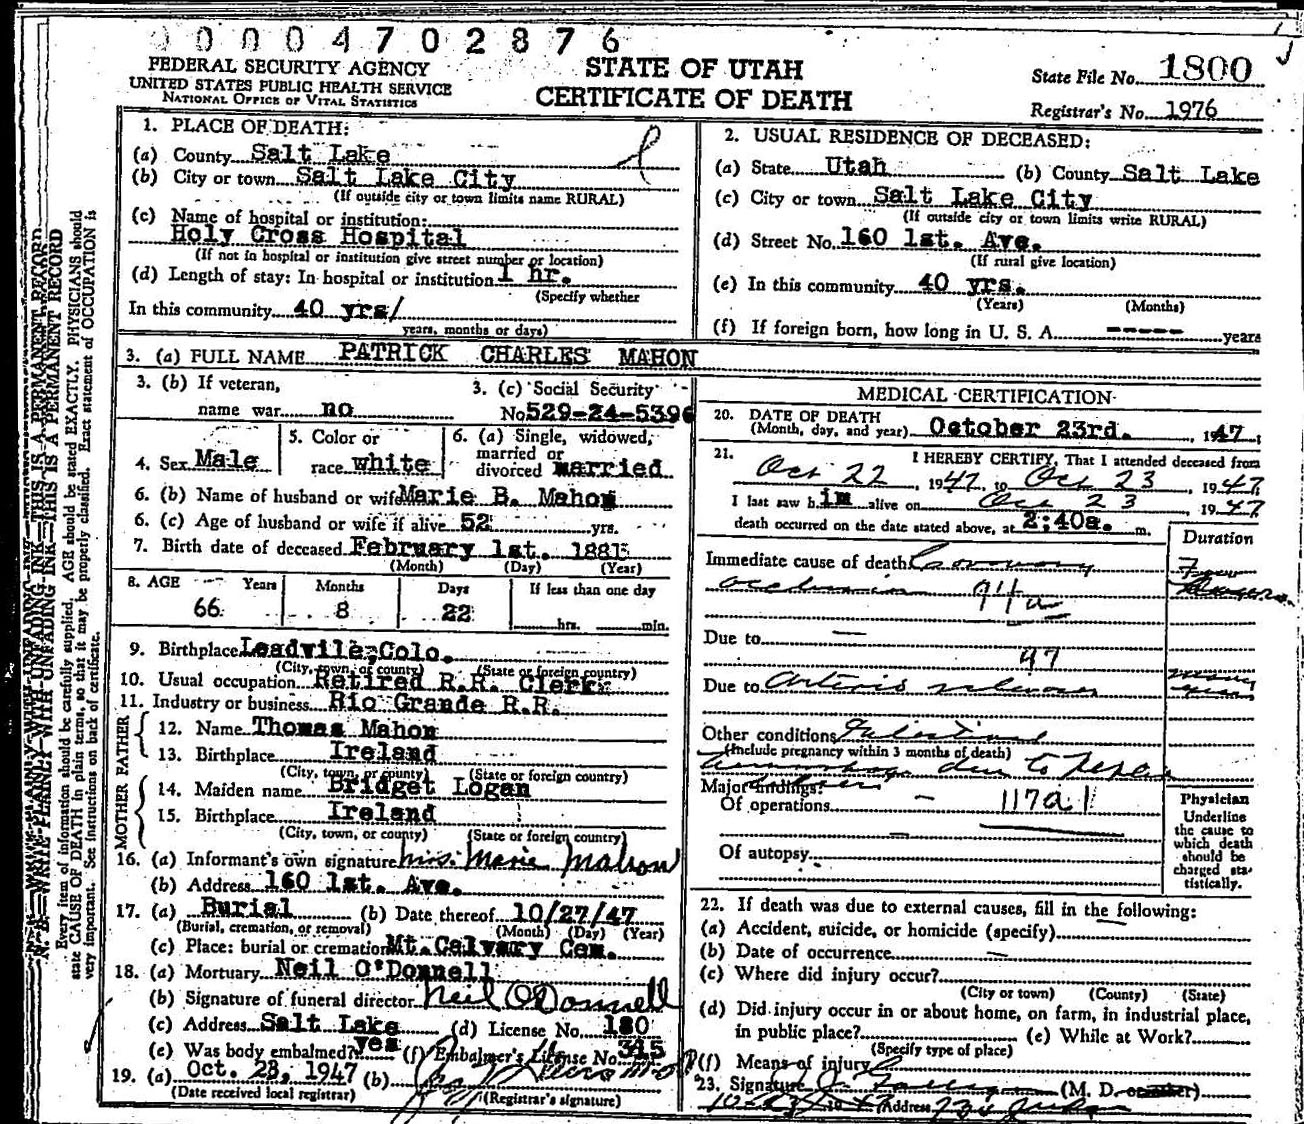 00004702876
FEDERAL SECURITY AGENCY
UNITED STATES PUBLIC HEALTH SERVICE
NATIONAL OFFICE OF VITAL STATISTICS
STATE OF UTAH
CERTIFICATE OF DEATH
State File No. 1800
Registrar's No. 1976
1. PLACE OF DEATH:
(a) County Salt Lake
(b) City or town Salt Lake City
(If outside city or town limits name RURAL)
(c) Name of hospital or institution:
Holy Cross Hospital
(If not in hospital or institution give street number or location)
(d) Length of stay: In hospital or institution 1 hr.
(Specify whether
In this community 40 yrs/
years, months or days)
2. USUAL RESIDENCE OF DECEASED:
(a) State Utah (b) County Salt Lake
(c) City or town Salt Lake City
(If outside city or town limits write RURAL)
(d) Street No. 160 1st. Ave.
(If rural give location)
(e) In this community 40 yrs.
(Years) (Months)
(f) If foreign born, how long in U. S. A. ----- years
3. (a) FULL NAME PATRICK CHARLES MAHON
3. (b) If veteran,
name war no
3. (c) Social Security
No. 529-24-5396
4. Sex Male
5. Color or
race white
6. (a) Single, widowed,
married or
divorced married
6. (b) Name of husband or wife Marie B. Mahon
6. (c) Age of husband or wife if alive 52 yrs.
7. Birth date of deceased February 1st. 1881
(Month) (Day) (Year)
8. AGE Years Months Days If less than one day
66 8 22 hrs. min.
9. Birthplace Leadvile, Colo.
(City, town, or county) (State or foreign country)
10. Usual occupation Retired R.R. Clerk
11. Industry or business Rio Grande R.R.
FATHER
12. Name Thomas Mahon
13. Birthplace Ireland
(City, town, or county) (State or foreign country)
MOTHER
14. Maiden name Bridget Logan
15. Birthplace Ireland
(City, town, or county) (State or foreign country)
16. (a) Informant's own signature Mrs. Marie Mahon
(b) Address 160 1st. Ave.
17. (a) Burial (b) Date thereof 10/27/47
(Burial, cremation, or removal) (Month) (Day) (Year)
(c) Place: burial or cremation Mt. Calvary Cem.
18. (a) Mortuary Neil O'Donnell
(b) Signature of funeral director Neil O'Donnell
(c) Address Salt Lake (d) License No. 180
(e) Was body embalmed? yes (f) Embalmer's License No. 315
19. (a) Oct. 28, 1947 (b)
(Date received local registrar) (Registrar's signature)
MEDICAL CERTIFICATION
20. DATE OF DEATH
(Month, day, and year) October 23rd. , 1947
21. I HEREBY CERTIFY, That I attended deceased from
Oct 22, 1947, to Oct 23, 1947
I last saw him alive on Oct 23, 1947
death occurred on the date stated above, at 2:40a. m.
Duration
Immediate cause of death Coronary
occlusion 94a
Due to —
97
Due to Arterio sclerosis many years
Other conditions Intestinal
(Include pregnancy within 3 months of death)
hemorrhage due to peptic
ulcer
Major findings:
Of operations — 117a1
Of autopsy
Physician
Underline
the cause to
which death
should be
charged sta-
tistically.
22. If death was due to external causes, fill in the following:
(a) Accident, suicide, or homicide (specify)
(b) Date of occurrence —
(c) Where did injury occur?
(City or town) (County) (State)
(d) Did injury occur in or about home, on farm, in industrial place,
in public place? (e) While at Work?
(Specify type of place)
(f) Means of injury
23. Signature (M. D. or other)
Address
N. B.—WRITE PLAINLY WITH UNFADING INK—THIS IS A PERMANENT RECORD
Every item of information should be carefully supplied. AGE should be stated EXACTLY. PHYSICIANS should
state CAUSE OF DEATH in plain terms, so that it may be properly classified. Exact statement of OCCUPATION is
very important. See instructions on back of certificate.